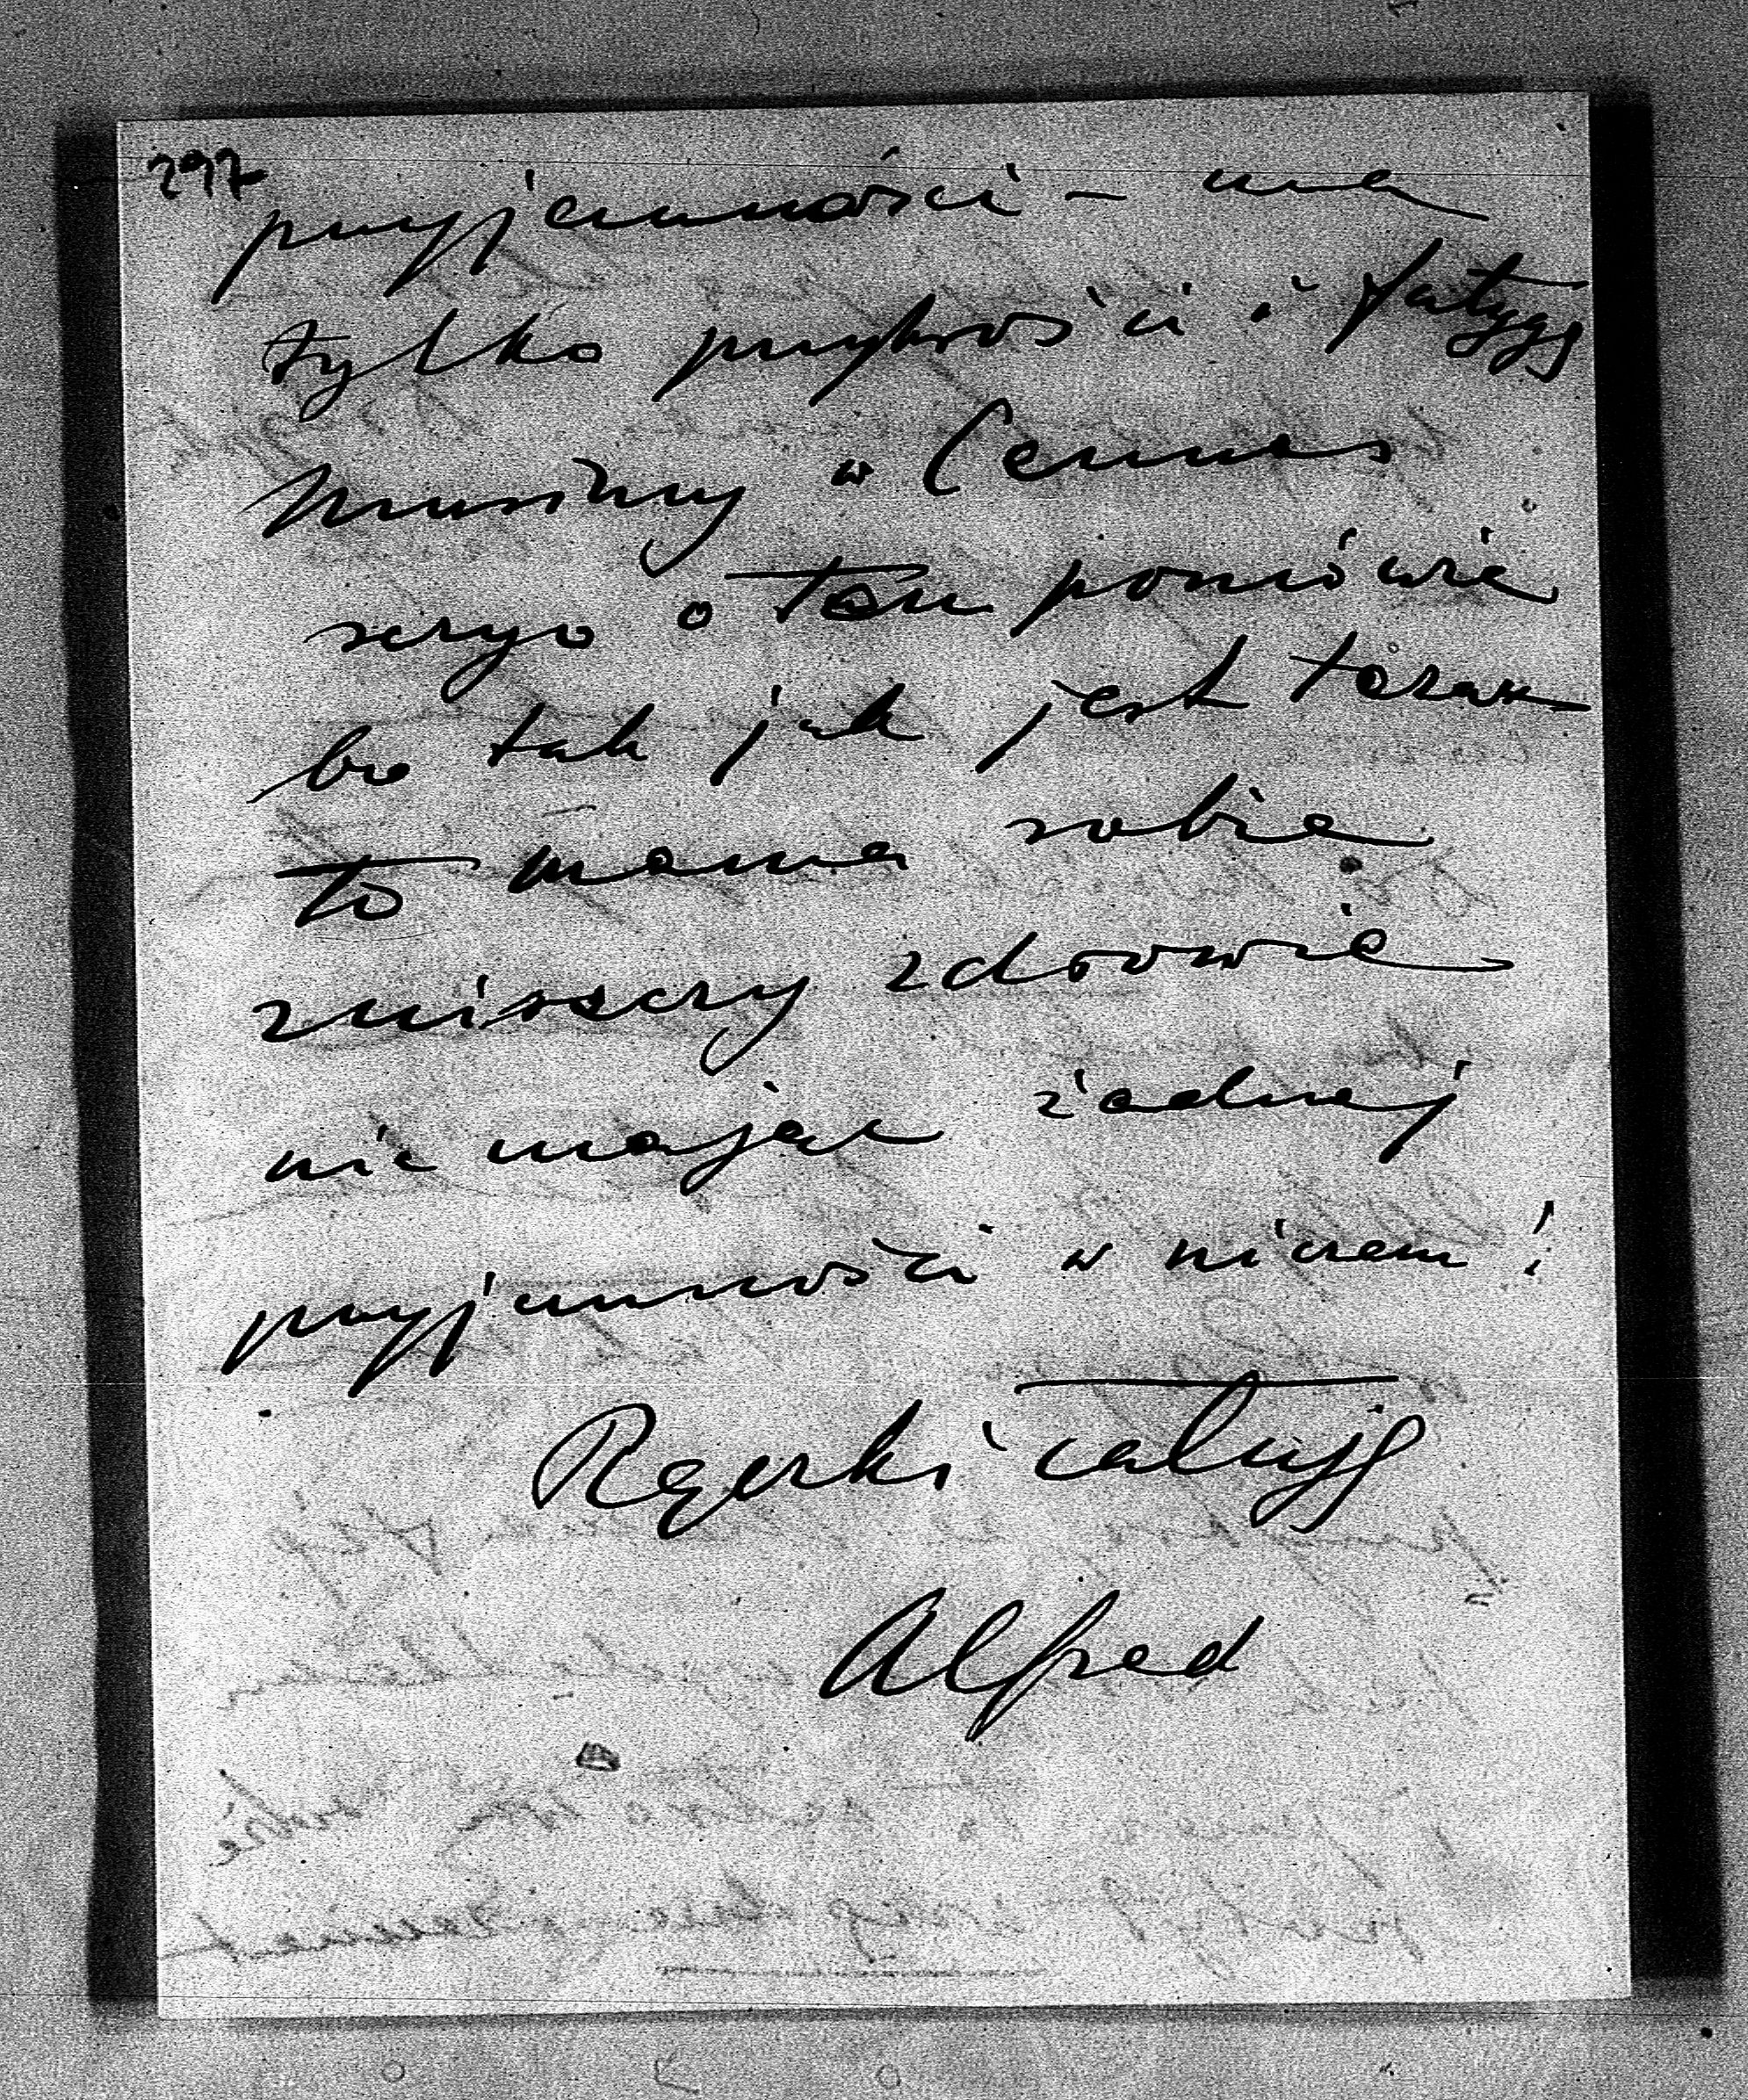 297
przyjemności – ma
tylko przykrości i fatygę
musimy w Cannes
seryo o tem pomówić
bo tak jak jest teraz
to mama sobie
zniszczy zdrowie
nie mając żadnej
przyjemności w niczem!
Rączki całuję
Alfred